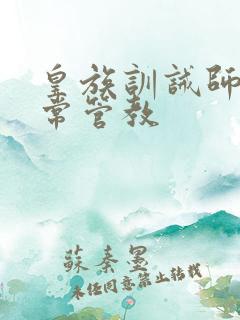 皇族訓誡師日
常管教
蘇秦墨
未任同意禁止转载